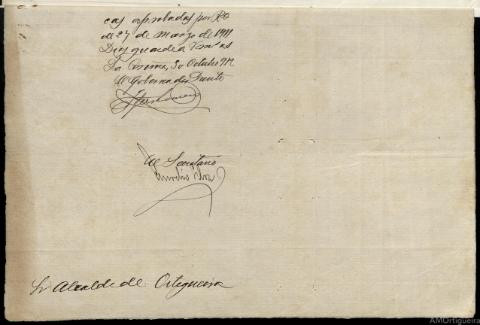 cas aprobadas por RO
de 27 de Marzo de 1911
Dios guarde a V
La Coruña, 30 Octubre
El Gobernador
El Secretario
Sr Alcalde de Ortigueira
AMOrtigueira